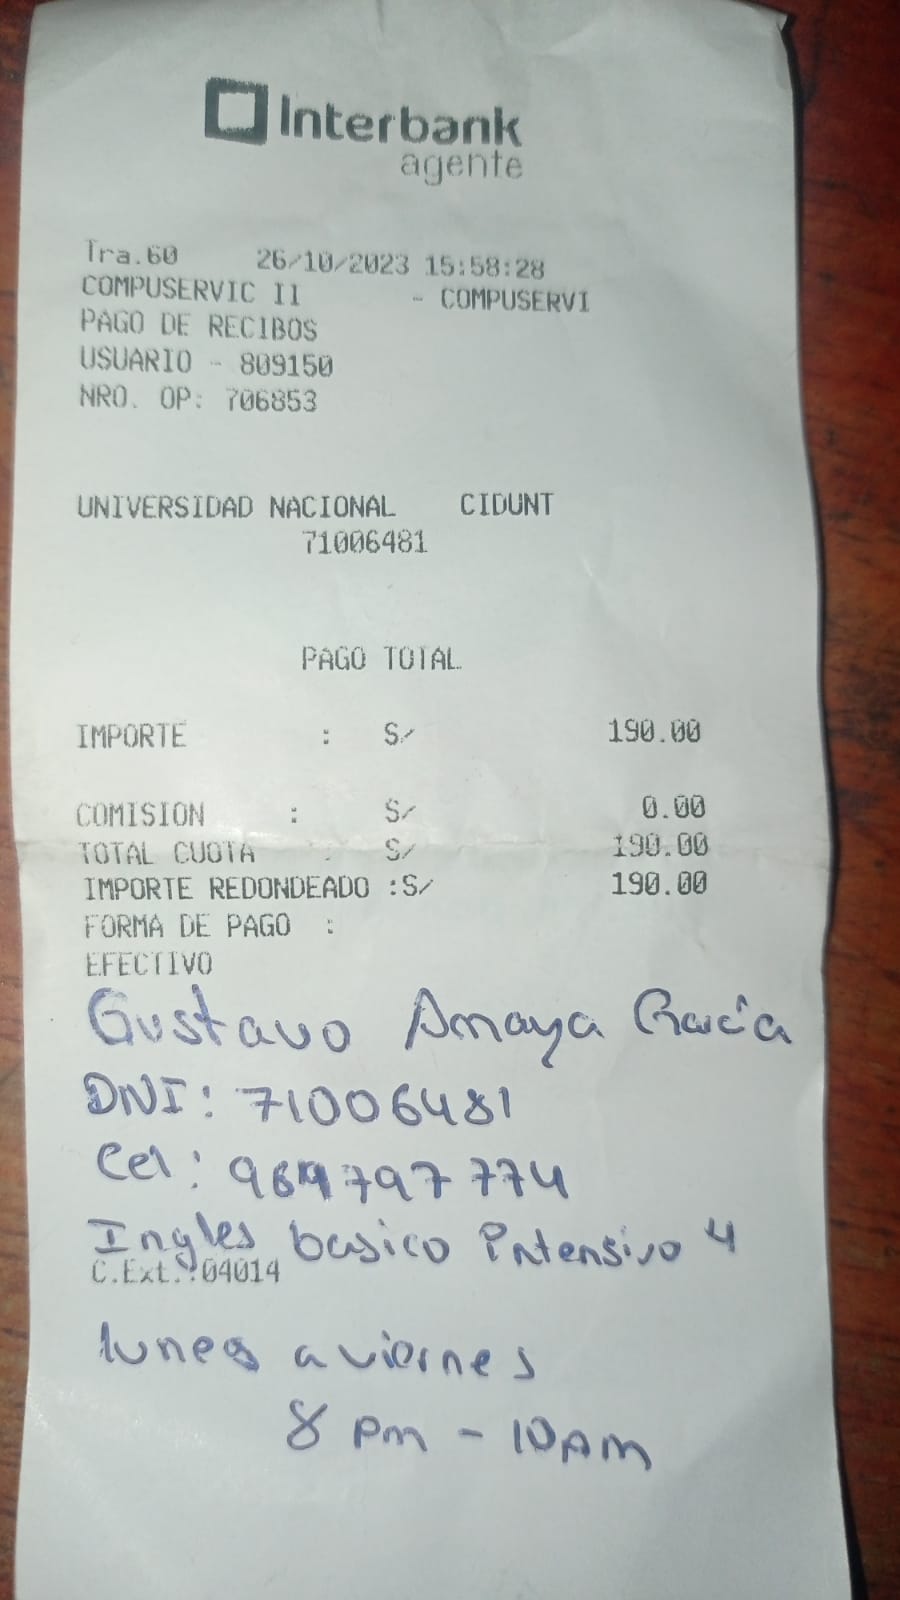 Interbank
agente
Tra.60 26/10/2023 15:58:28
COMPUSERVIC II - COMPUSERVI
PAGO DE RECIBOS
USUARIO - 809150
NRO. OP: 706853
UNIVERSIDAD NACIONAL CIDUNT
71006481
PAGO TOTAL
IMPORTE : S/ 190.00
COMISION : S/ 0.00
TOTAL CUOTA : S/ 190.00
IMPORTE REDONDEADO :S/ 190.00
FORMA DE PAGO :
EFECTIVO
Gustavo Amaya García
DNI: 71006481
Cel: 964797774
Ingles basico intensivo 4
C.Ext.:04014
lunes a viernes
8 pm - 10pm